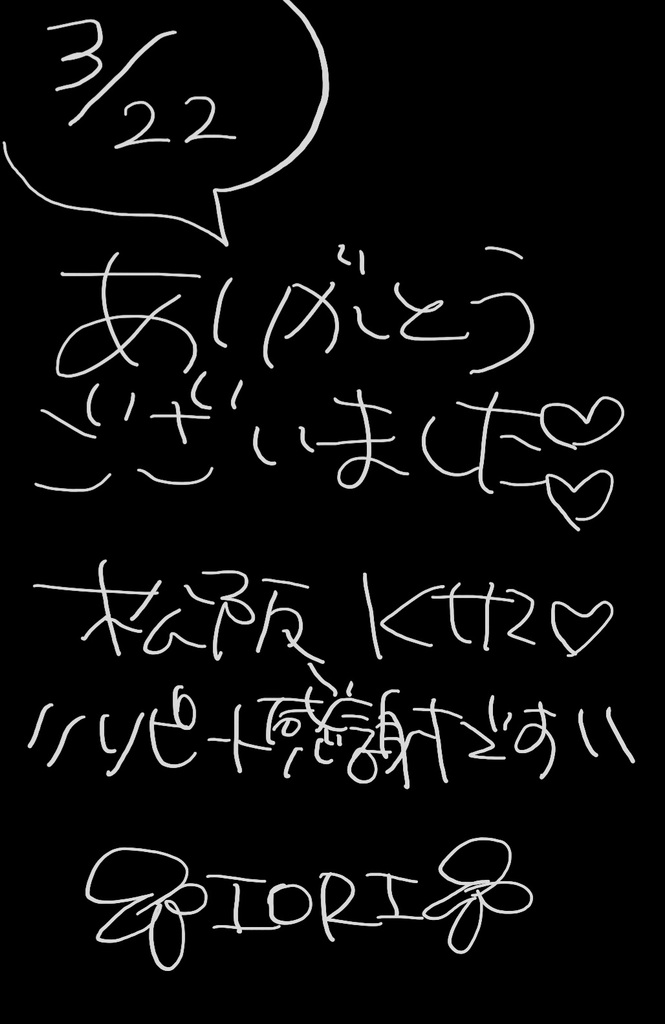 3/22
ありがとう
ございました♡♡
松阪 Kサマ♡
〃リピート感謝です〃
IORI